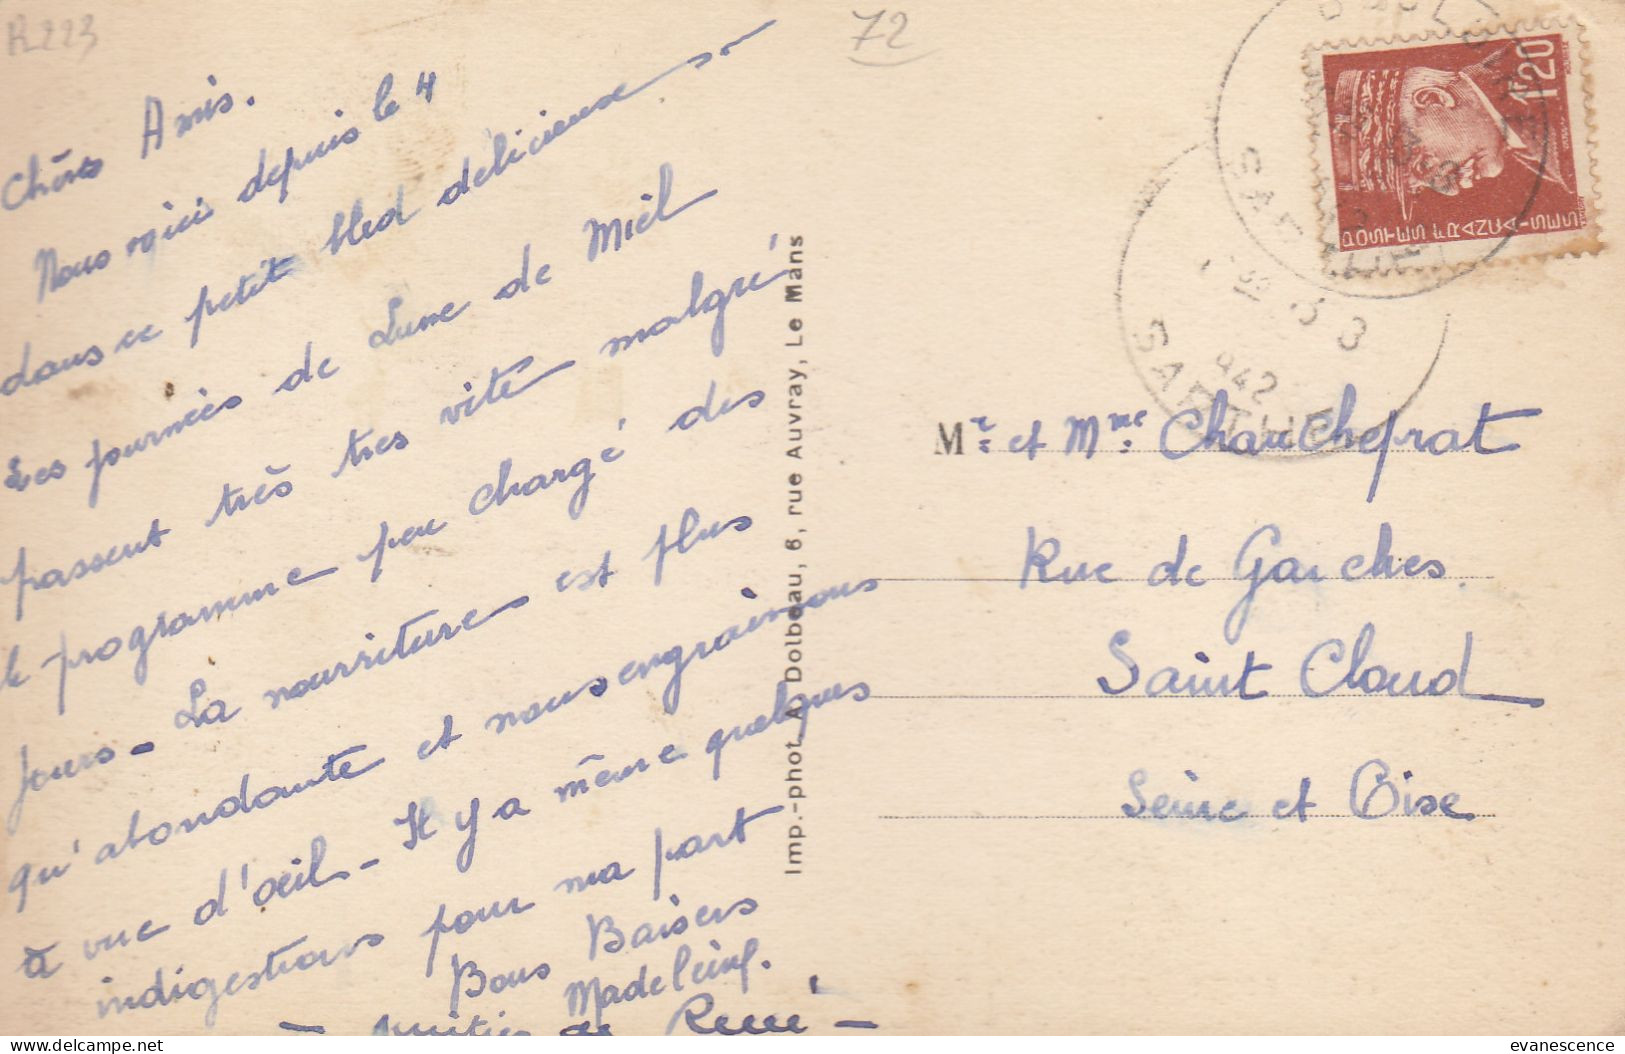 R223
72
Chers Amis.
Nous voici depuis le 4
dans ce petit bled délicieux
Les journées de Lune de Miel
passent très très vite malgré
le programme peu chargé des
jours - La nourriture est plus
qu'abondante et nous engraissons
à vue d'oeil - Il y a même quelques
indigestions pour ma part
Bons Baisers
Madeleine.
- Amitiés de René -
Imp.-phot. A. Dolbeau, 6, rue Auvray, Le Mans
1F20
POSTES FRANÇAISES
SARTHE
942
SARTHE
Mr et Mme Chauchefrat
Rue de Garches
Saint Cloud
Seine et Oise
evanescence